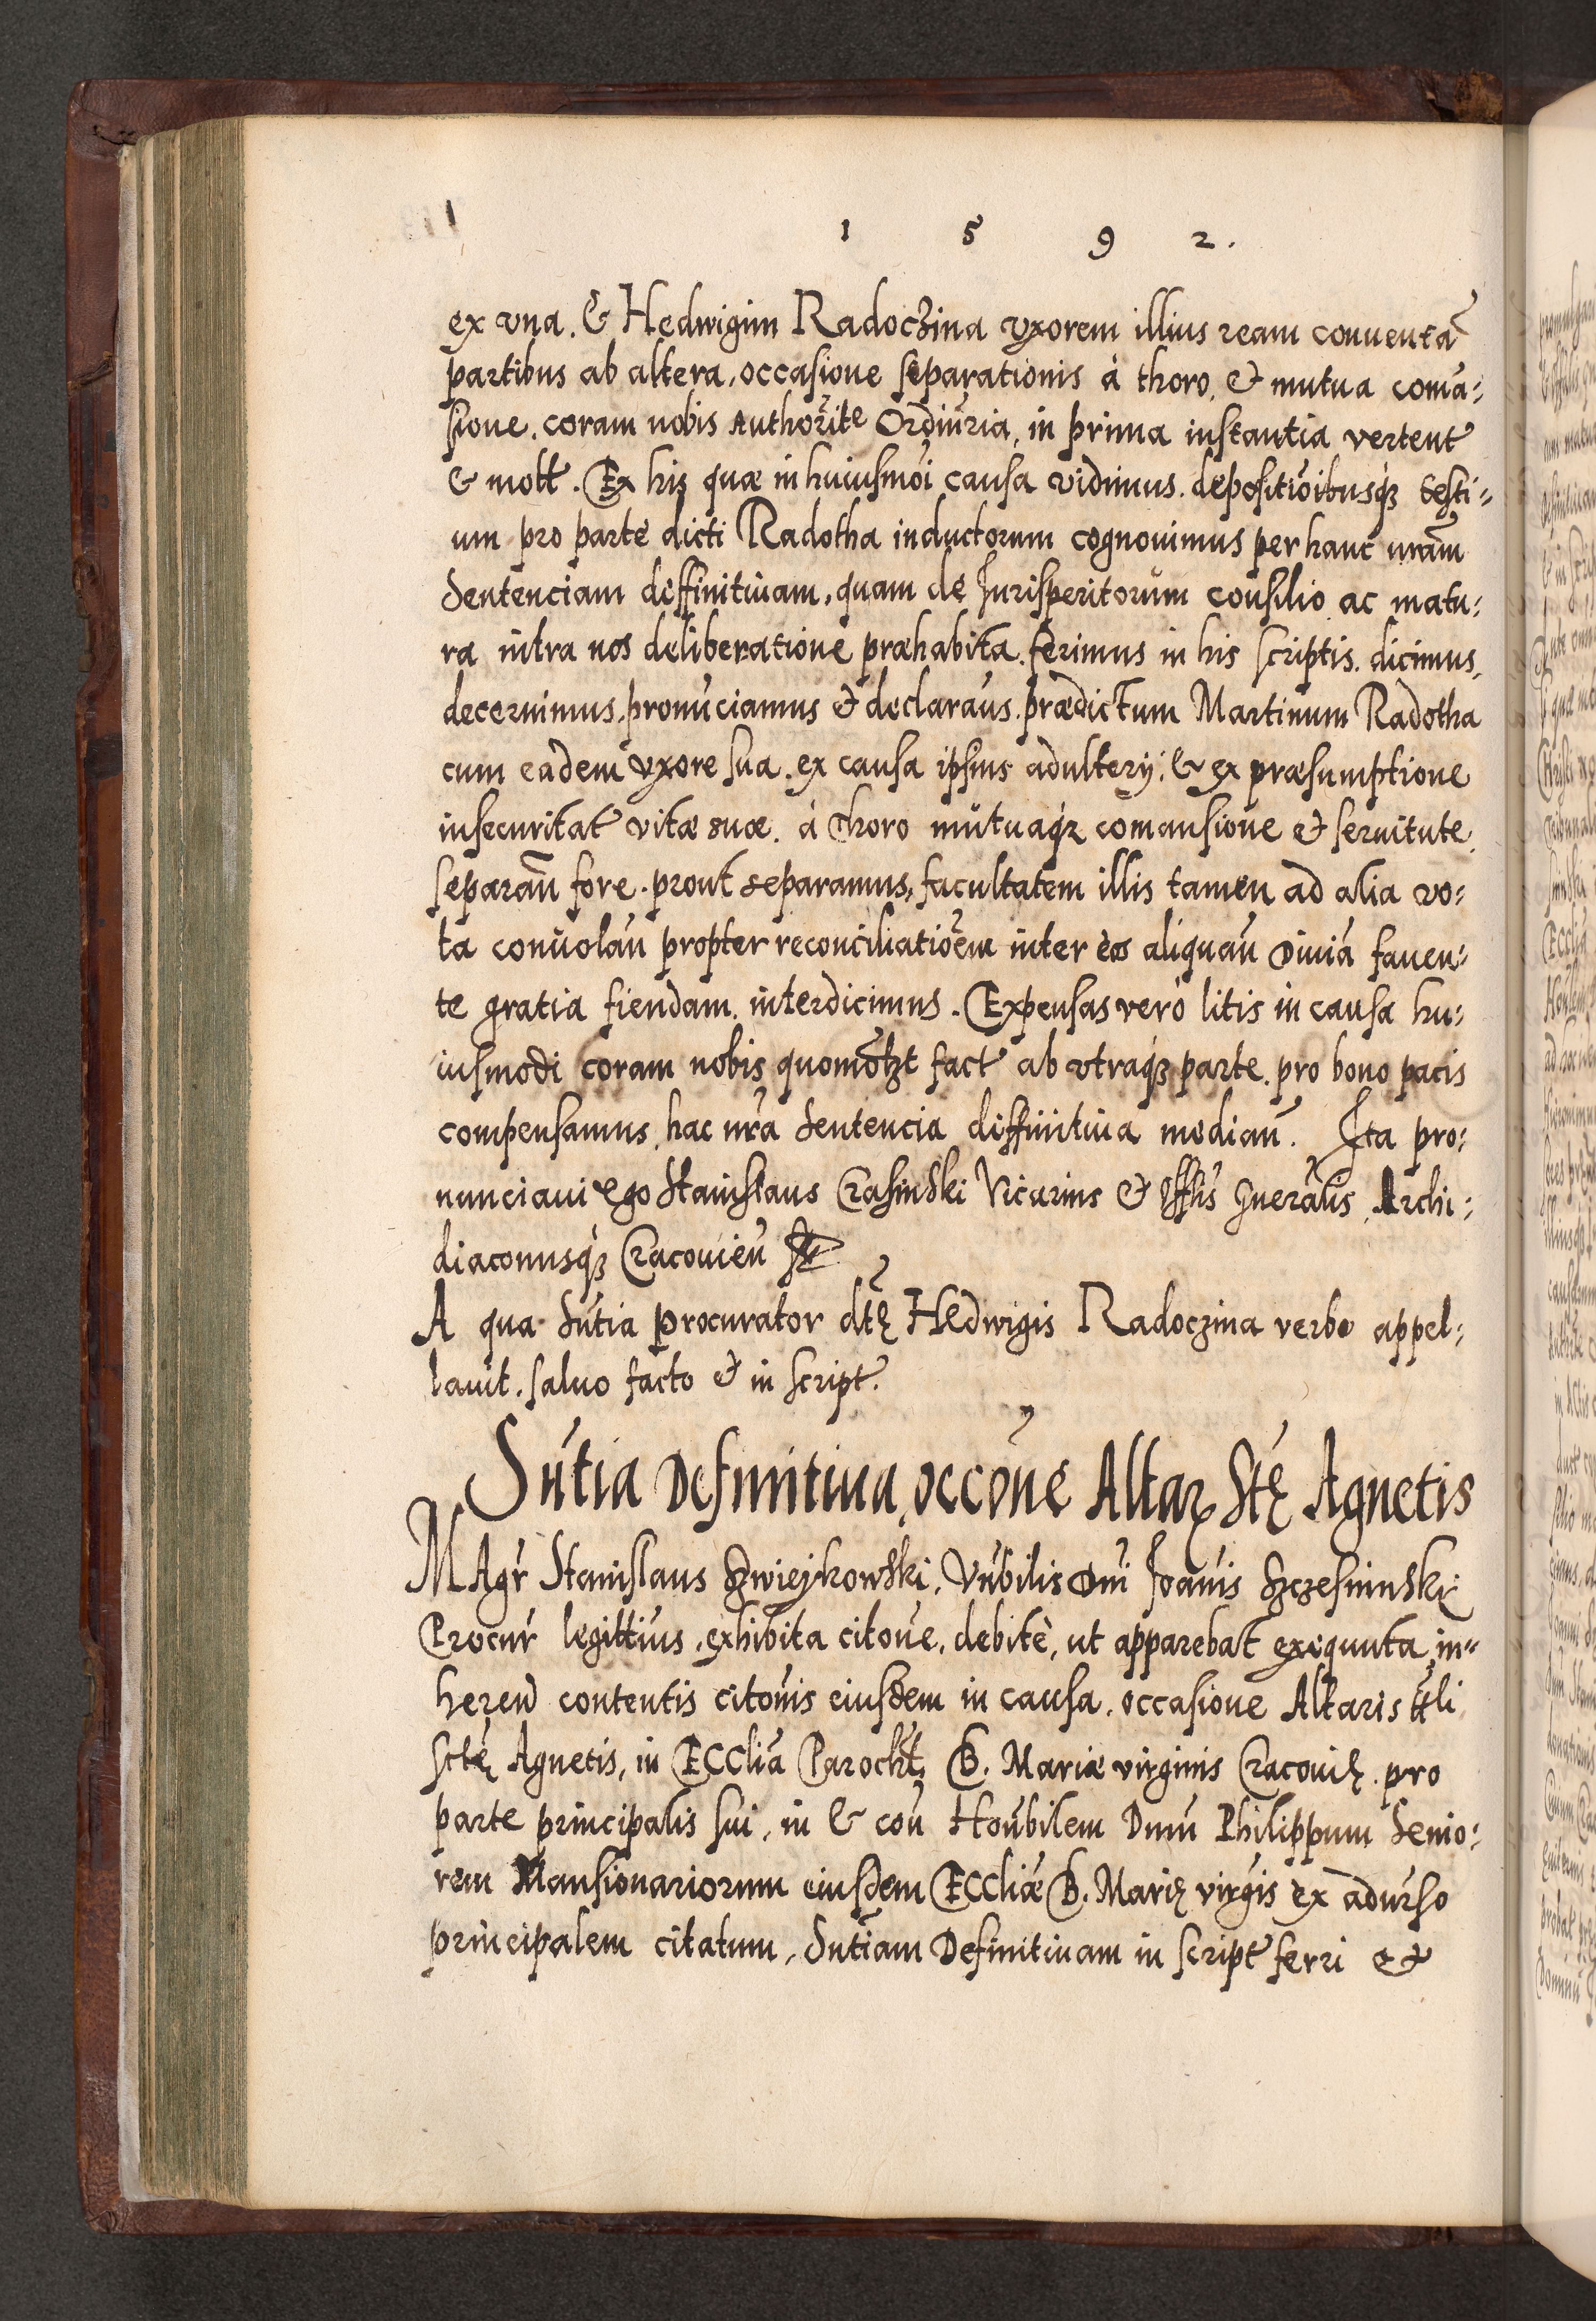 1 5 9 2.
ex vna. & Hedwigim Radoczina vxorem illius ream conuentã
partibus ab altera, occasione separationis à thoro, et mutua comã-
sione. coram nobis Authorĩte Ordinr̃ia, in prima instantia vertent
& mott. Ex his quæ in huiusmõi causa vidimus. depositiõibusq́ʒ testi-
um pro parte dicti Radotha inductorum cognouimus per hanc nrãm
Sentenciam diffinitiuam, quam de Jurisperitorum consilio ac matu-
ra intra nos deliberatione præhabita. ferimus in his scriptis. dicimus,
decernimus, pronũciamus et declarãus. prædictum Martinum Radotha
cum eadem vxore sua. ex causa ipsius adulterij. & ex præsumptione
insecuritat vitæ suæ. à thoro mutuaq́ʒ comansione et seruitute
separañ fore. prout separamus, facultatem illis tamen ad alia vo-
ta conuolañ propter reconciliatiõem inter eos aliquañ diuiã fauen-
te gratia fiendam. interdicimus. Expensas verò litis in causa hu-
iusmodi coram nobis quomõlʒt fact ab vtraq́ʒ parte. pro bono pacis
compensamus, hac nr̃a Sentencia diffinitiua mediañ. Ita pro-
nunciaui ego Stanislaus Crasinski Vicarius et Offlis Gnerãlis, Archi-
diaconusq́ʒ Cracouieñ
A qua Sñtia procurator dtę Hedwigis Radoczina verbo appel-
lauit. saluo facto et in script.
Sñtia Definitiua, occõne Altar Stę Agnetis
MAgr̃ Stanislaus Zwiejkowski, Vñbilis Dñi Joañis Szczesninski
Procur̃ legittĩus, exhibita citoñe, debitè, ut apparebat exequuta, in-
hereñd contentis citoñis eiusdem in causa, occasione Altaris ttli
Sctę Agnetis, in ECCliã Parochĩ, B. Mariæ virginis Cracouię. pro
parte principalis sui, in & coñ Hoñbilem Dnm̃ Philippum Senio-
rem Mansionariorum eiusdem ECCliæ B. Marię virgĩs ex aduerso
principalem citatum, Sñtiam Definitiuam in script ferri et